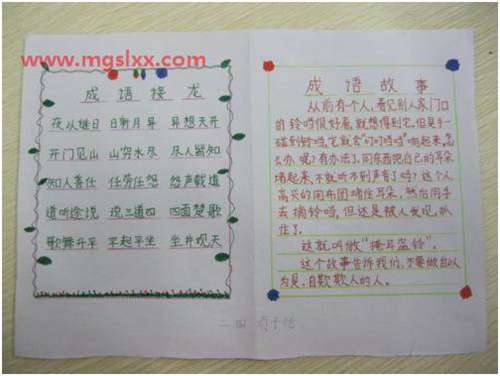 www.mgslxx.com
成语接龙
夜以继日 日新月异 异想天开
开门见山 山穷水尽 尽人皆知
知人善任 任劳任怨 怨声载道
道听途说 说三道四 四面楚歌
歌舞升平 平起平坐 坐井观天
成语故事
从前有个人,看见别人家门口
的铃铛很好看,就想得到它,但是手一
碰到铃铛,它就会“叮叮当当”响起来,怎
么办呢?有办法了,用东西把自己的耳朵
堵起来,不就听不到声音了吗?这个人
高兴的用布团堵住耳朵,然后用手
去摘铃铛,但还是被人发现,抓
住了。
这就叫做“掩耳盗铃”。
这个故事告诉我们,不要做自以
为是,自欺欺人的人。
二.四